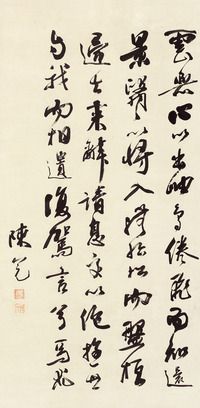 雲無心以出岫鳥倦飛而知還
景翳翳以將入撫孤松而盤桓
歸去來辭請息交以絕遊世
與我而相遺復駕言兮焉求
陳